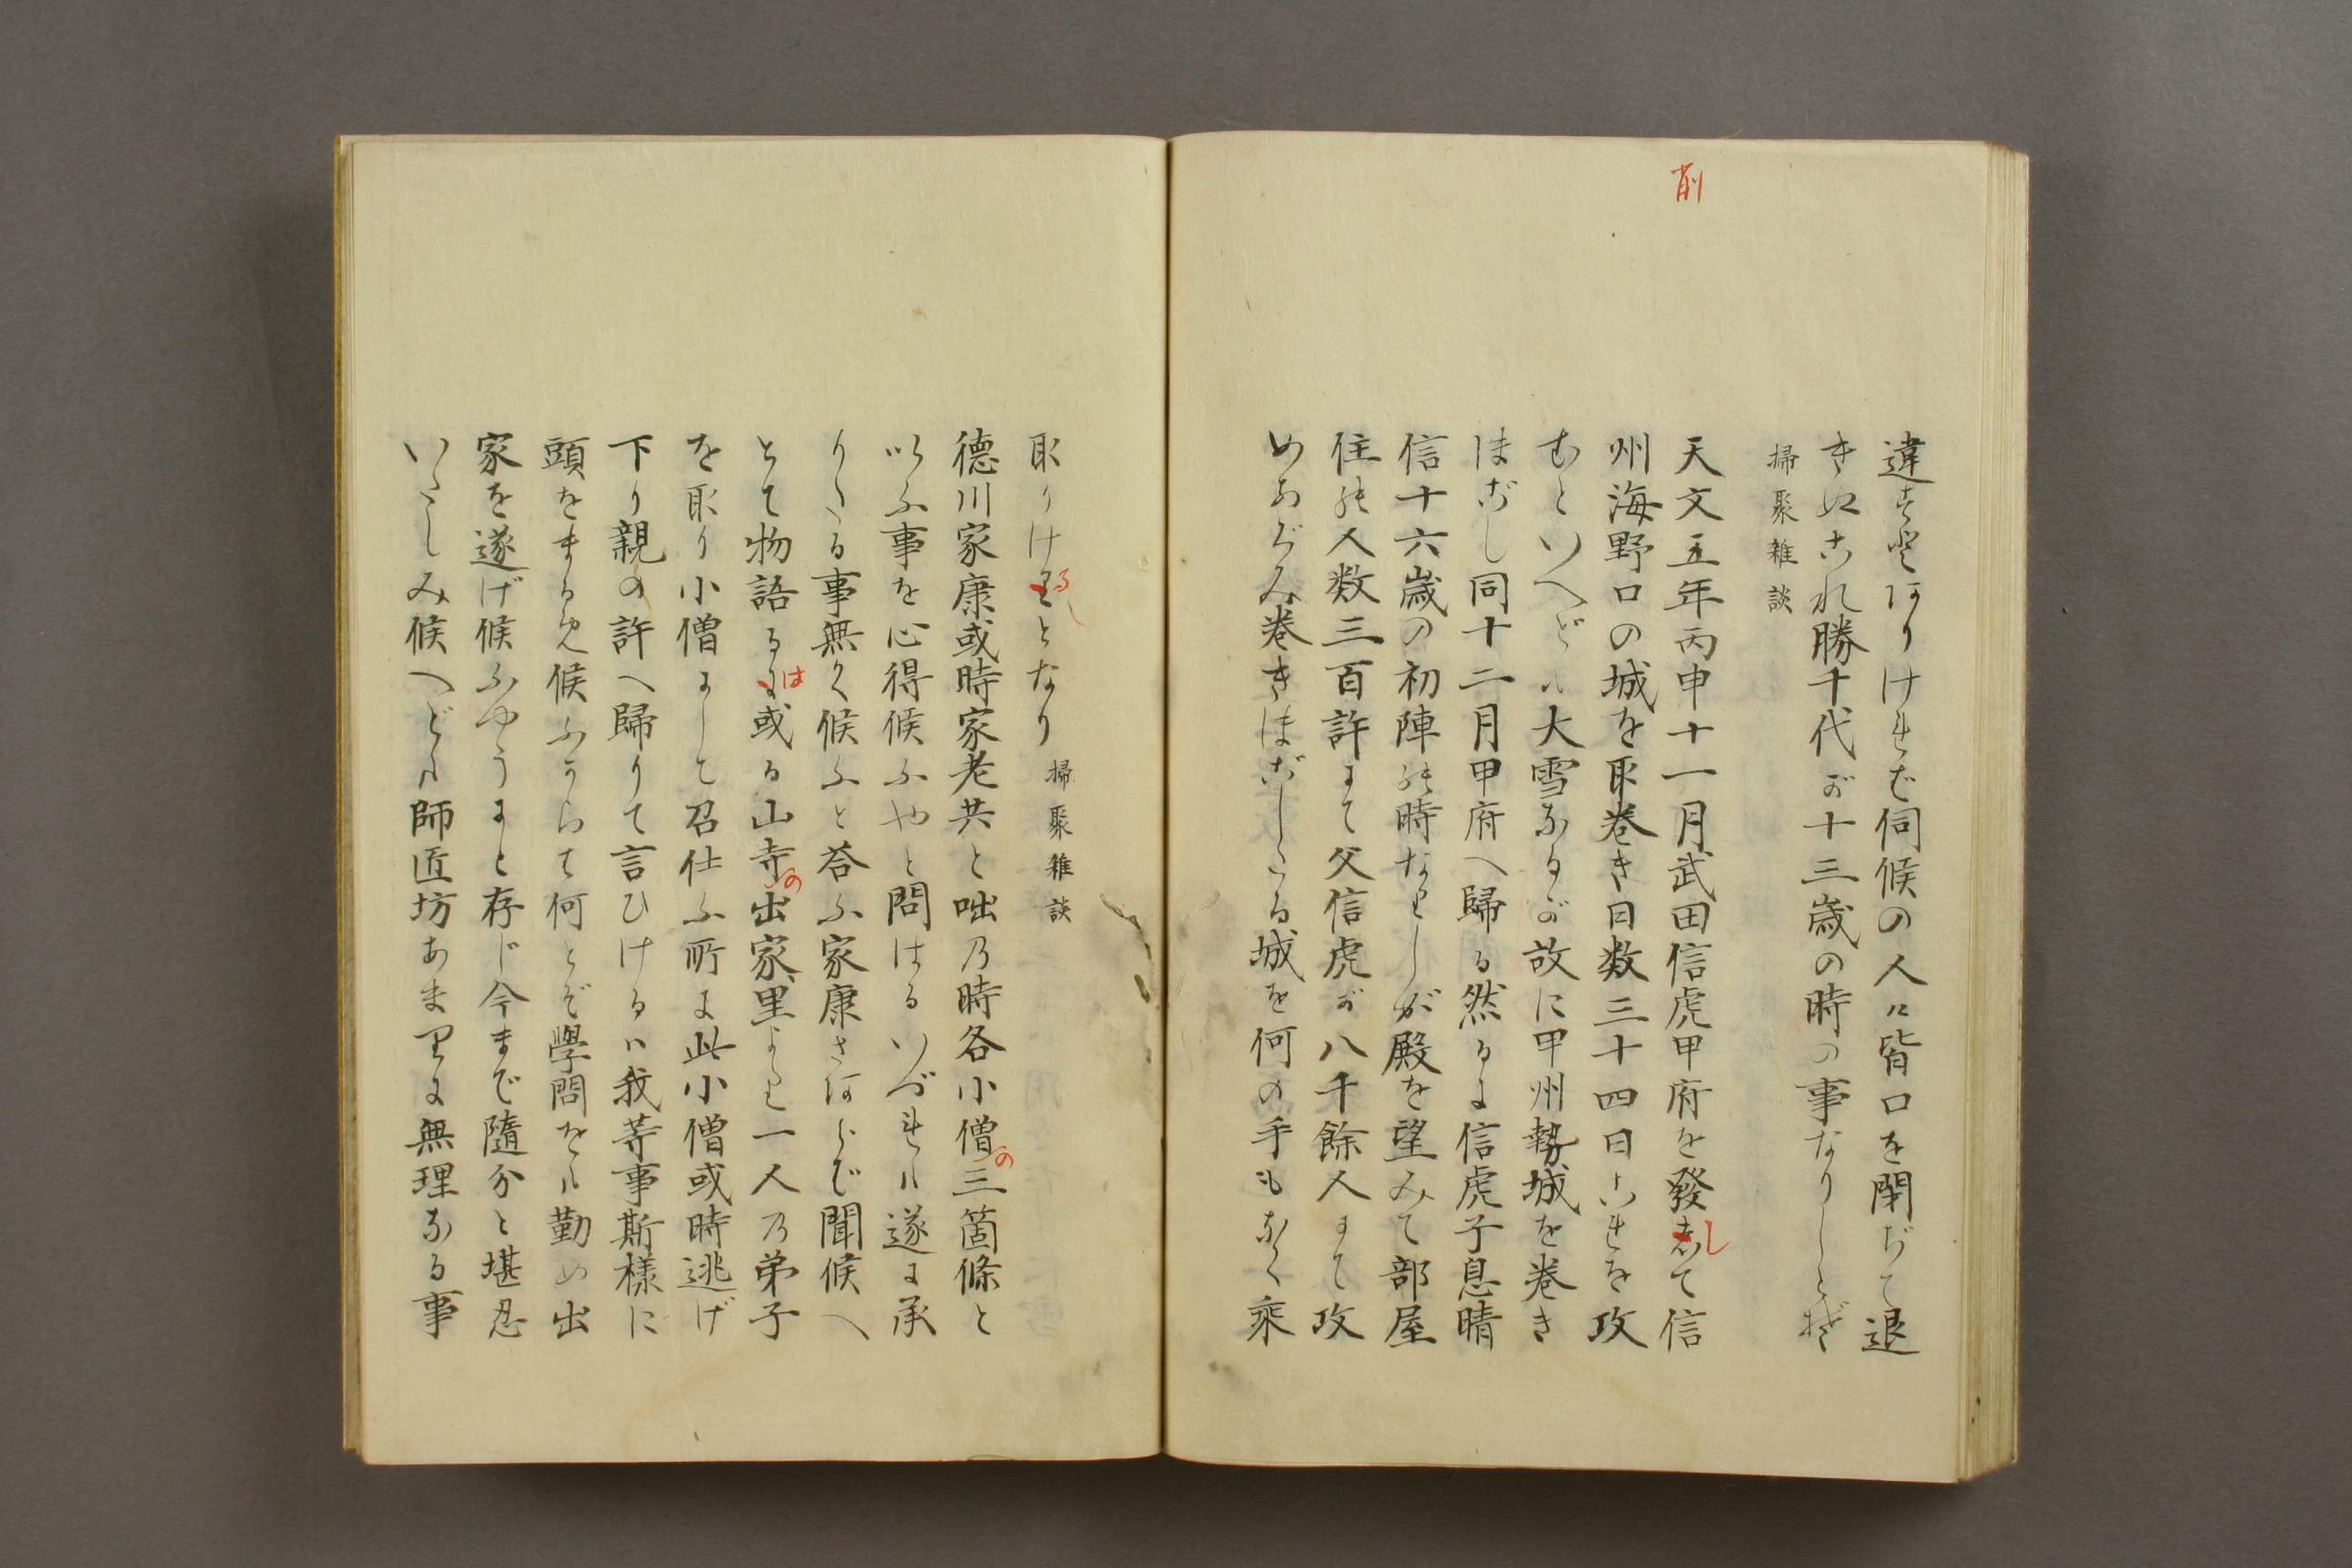 削
違はざりければ伺候の人は皆口を閉ぢて退
きぬこれ勝千代が十三歳の時の事なりしとぞ
掃聚雑談
天文五年丙申十一月武田信虎甲府を發して信
州海野口の城を取巻き日数三十四日これを攻
むといへども大雪なるが故に甲州勢城を巻き
ほぐし同十二月甲府へ歸る然るに信虎子息晴
信十六歳の初陣の時なりしが殿を望みて部屋
住の人数三百許にて父信虎が八千餘人にて攻
めあぐみ巻きほぐしたる城を何の手もなく乘
取りけるとなり 掃聚雑談
徳川家康或時家老共と咄乃時各小僧の三箇條と
いふ事を心得候ふやと問はるいづれも遂に承
りたる事無く候ふと答ふ家康さあらば聞候へ
とて物語るは或る山寺の出家里より一人乃弟子
を取り小僧にして召仕ふ所に此小僧或時逃げ
下り親の許へ歸りて言ひけるは我等事斯樣に
頭をまるめ候ふからは何とぞ學問をも勤め出
家を遂げ候ふやうにと存じ今まで隨分と堪忍
いたしみ候へども師匠坊あまりに無理なる事